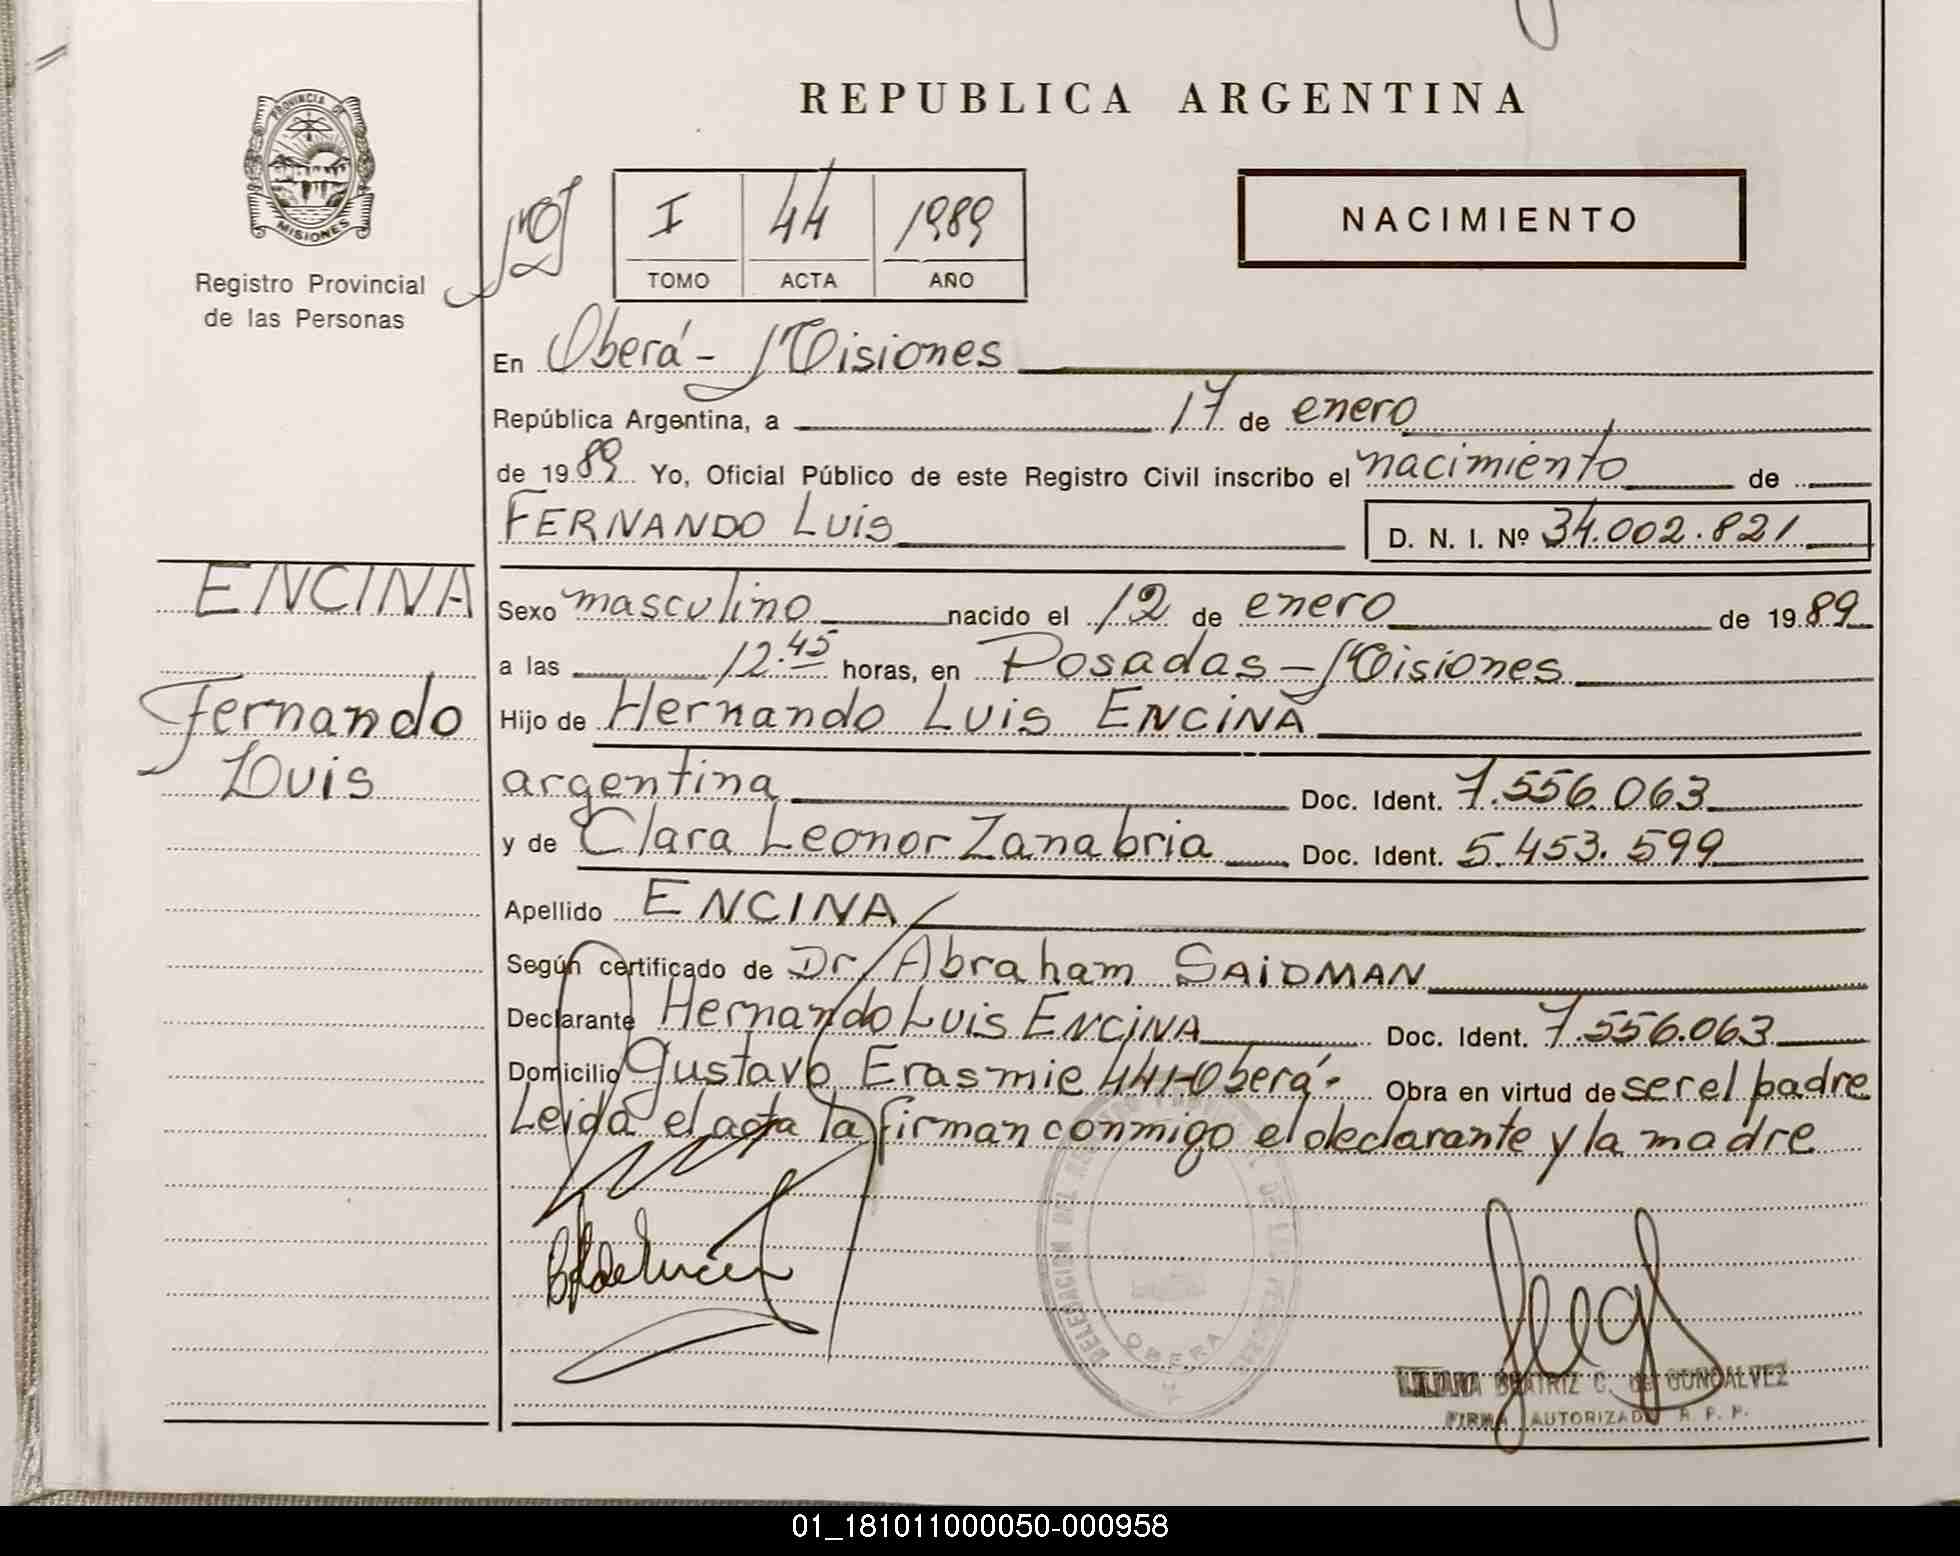 REPUBLICA ARGENTINA
PROVINCIA DE
MISIONES
Registro Provincial
de las Personas
I 44 1989
TOMO ACTA AÑO
NACIMIENTO
En Oberá - Misiones
República Argentina, a 17 de enero
de 1989 Yo, Oficial Público de este Registro Civil inscribo el nacimiento de
FERNANDO Luis D. N. I. Nº 34.002.821
ENCINA
Fernando
Luis
Sexo masculino nacido el 12 de enero de 1989
a las 12.45 horas, en Posadas - Misiones
Hijo de Hernando Luis ENCINA
argentina Doc. Ident. 7.556.063
y de Clara Leonor Zanabria Doc. Ident. 5.453.599
Apellido ENCINA
Según certificado de Dr Abraham SAIDMAN
Declarante Hernando Luis ENCINA Doc. Ident. 7.556.063
Domicilio Gustavo Erasmie 441-Oberá- Obra en virtud de ser el padre
Leida el acta la firman conmigo el declarante y la madre
DELEGACION DEL
OBERA
BEATRIZ C. de GONCALVEZ
FIRMA AUTORIZADA R. P. P.
01_181011000050-000958